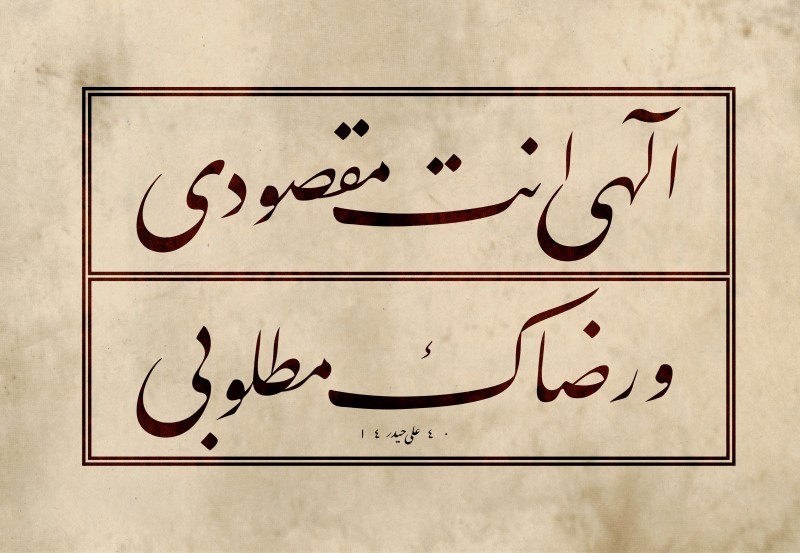 الهی انت مقصودی
ورضاك مطلوبی
١٤ علی حیدر ٤٠